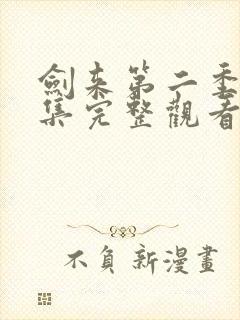 劍来第二季
集完整觀看
不負新漫畫